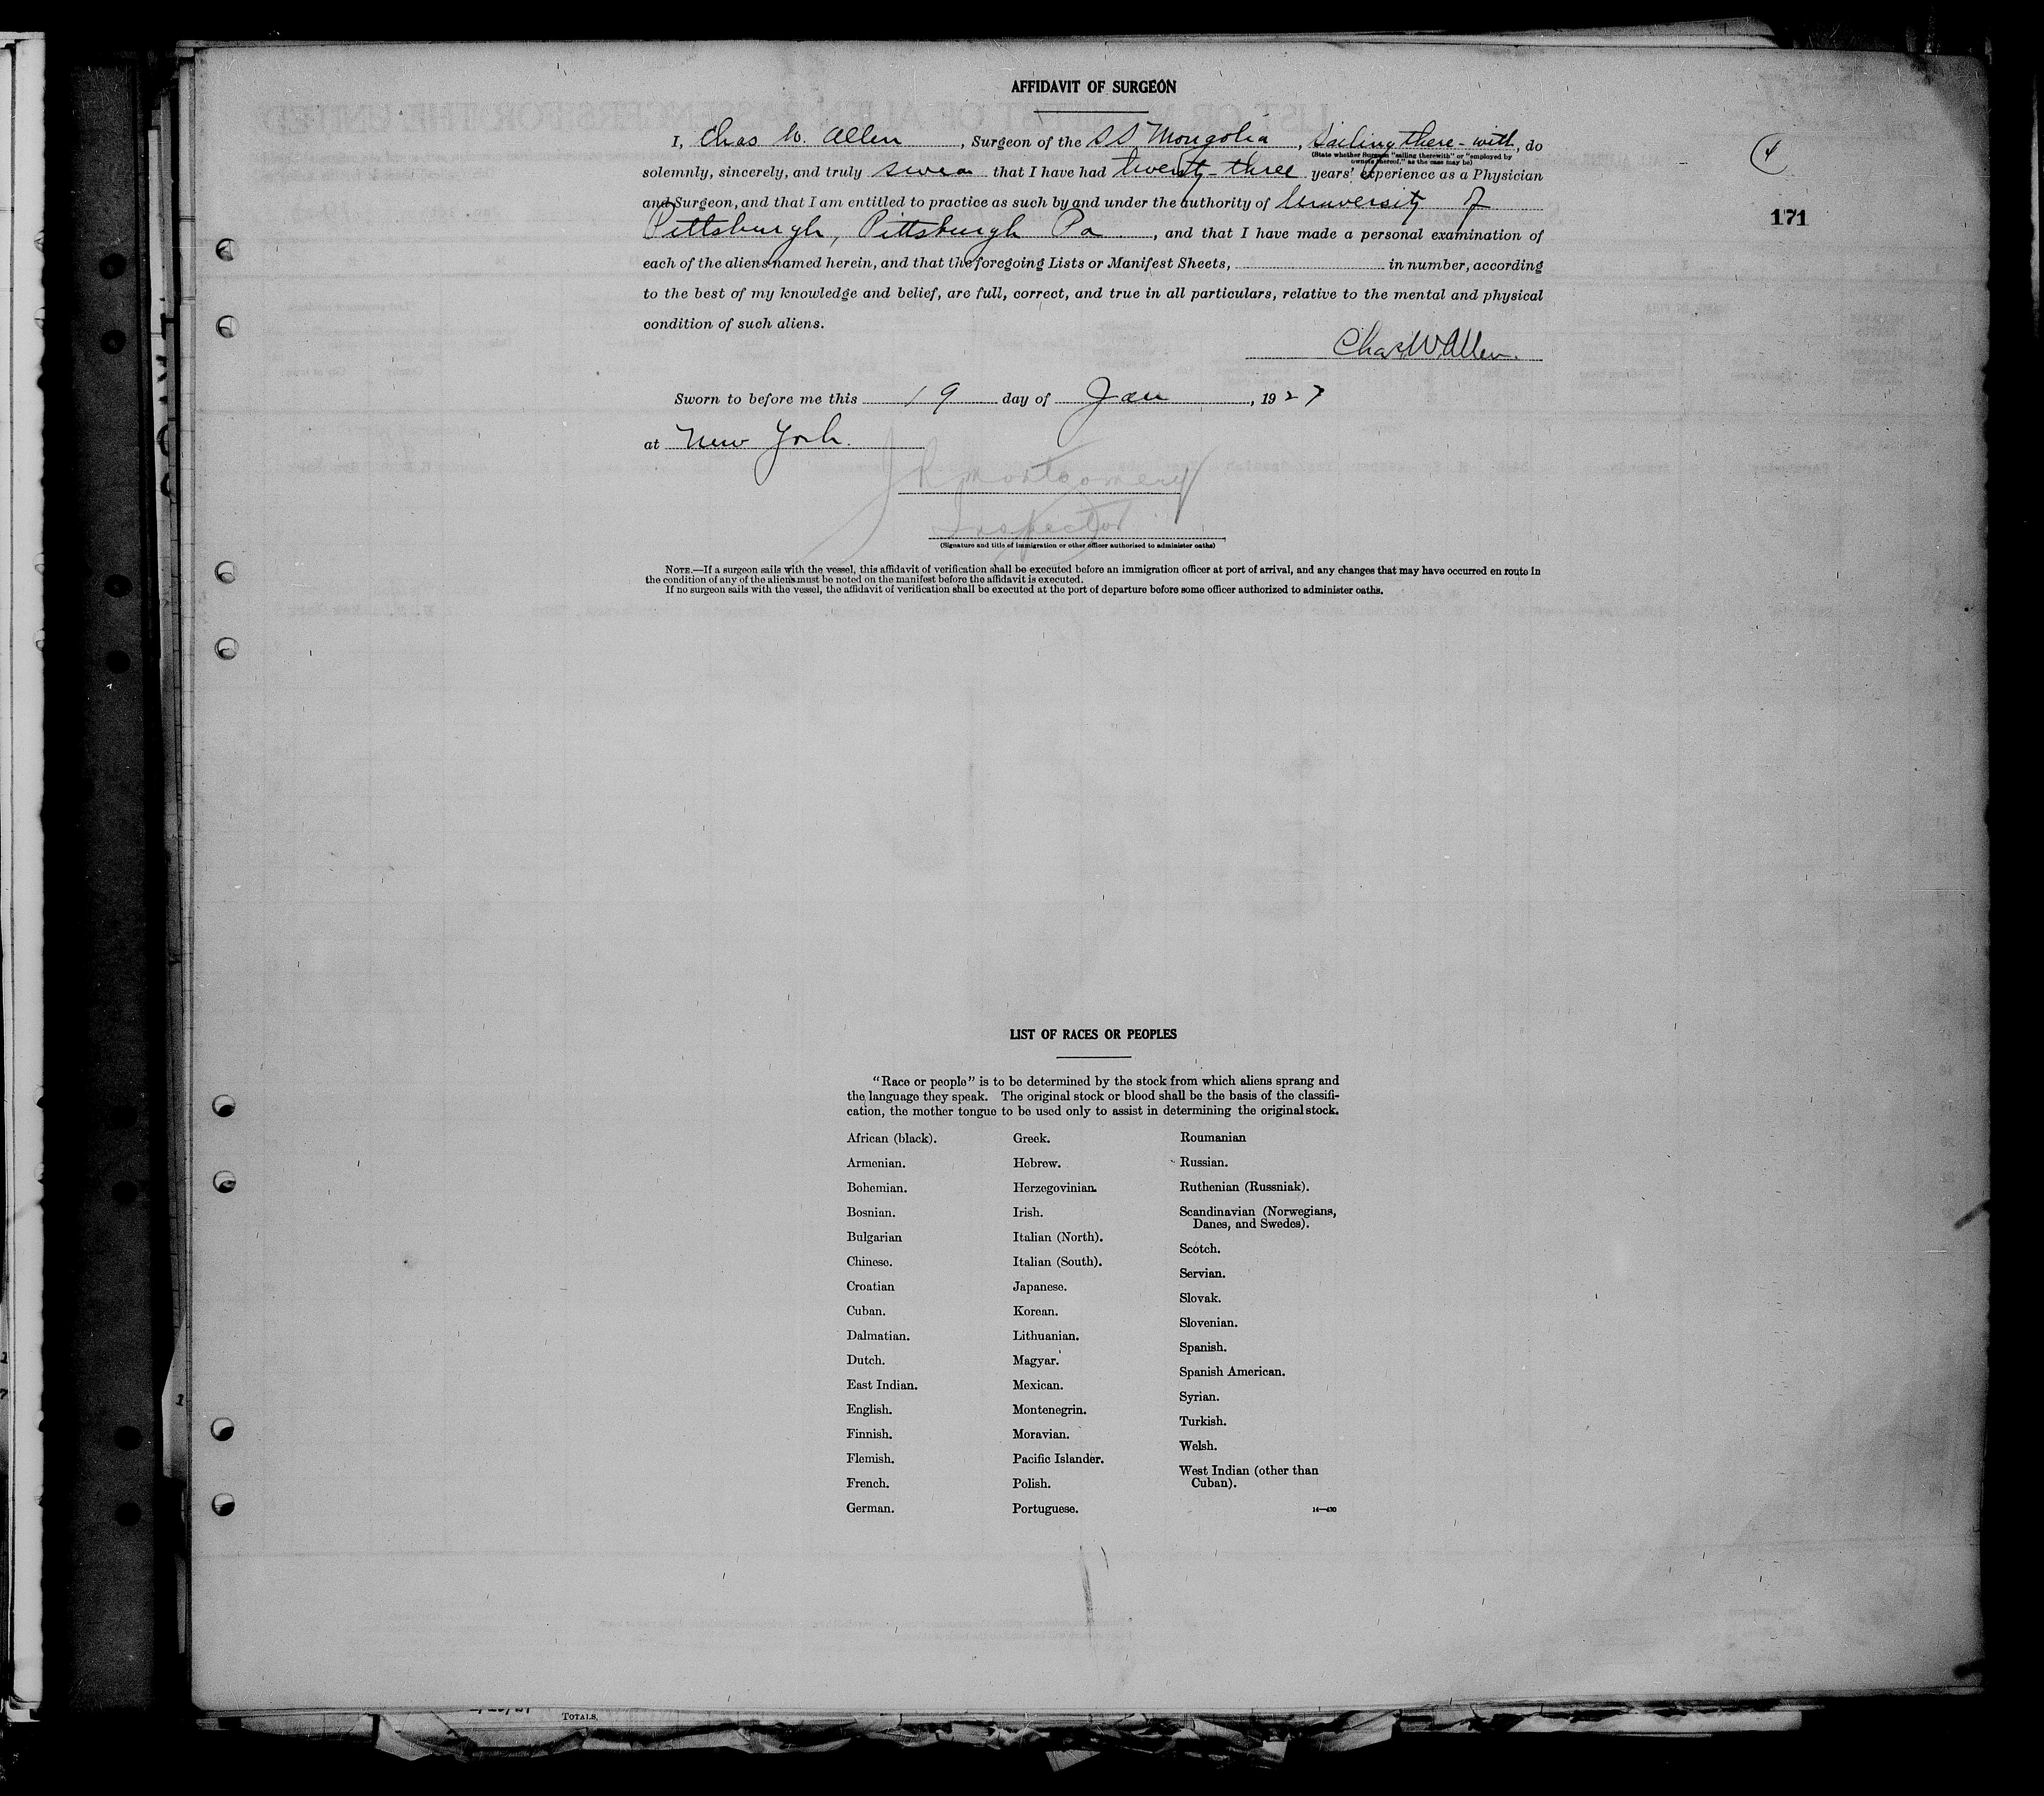 AFFIDAVIT OF SURGEON
I, Chas W. Allen, Surgeon of the SS Mongolia, Sailing there-with, do
(State whether Surgeon "sailing therewith" or "employed by
owners thereof," as the case may be)
solemnly, sincerely, and truly swear that I have had twenty-three years' experience as a Physician
and Surgeon, and that I am entitled to practice as such by and under the authority of University of
Pittsburgh, Pittsburgh Pa, and that I have made a personal examination of
each of the aliens named herein, and that the foregoing Lists or Manifest Sheets, in number, according
to the best of my knowledge and belief, are full, correct, and true in all particulars, relative to the mental and physical
condition of such aliens.
Chas W Allen.
Sworn to before me this 19 day of Jan, 1927
at New York.
J R Montgomery
Inspector
(Signature and title of immigration or other officer authorized to administer oaths)
NOTE.—If a surgeon sails with the vessel, this affidavit of verification shall be executed before an immigration officer at port of arrival, and any changes that may have occurred en route in
the condition of any of the aliens must be noted on the manifest before the affidavit is executed.
If no surgeon sails with the vessel, the affidavit of verification shall be executed at the port of departure before some officer authorized to administer oaths.
4
171
LIST OF RACES OR PEOPLES
"Race or people" is to be determined by the stock from which aliens sprang and
the language they speak. The original stock or blood shall be the basis of the classifi-
cation, the mother tongue to be used only to assist in determining the original stock.
African (black).
Armenian.
Bohemian.
Bosnian.
Bulgarian
Chinese.
Croatian
Cuban.
Dalmatian.
Dutch.
East Indian.
English.
Finnish.
Flemish.
French.
German.
Greek.
Hebrew.
Herzegovinian.
Irish.
Italian (North).
Italian (South).
Japanese.
Korean.
Lithuanian.
Magyar.
Mexican.
Montenegrin.
Moravian.
Pacific Islander.
Polish.
Portuguese.
Roumanian
Russian.
Ruthenian (Russniak).
Scandinavian (Norwegians,
Danes, and Swedes).
Scotch.
Servian.
Slovak.
Slovenian.
Spanish.
Spanish American.
Syrian.
Turkish.
Welsh.
West Indian (other than
Cuban).
14—430
TOTALS.